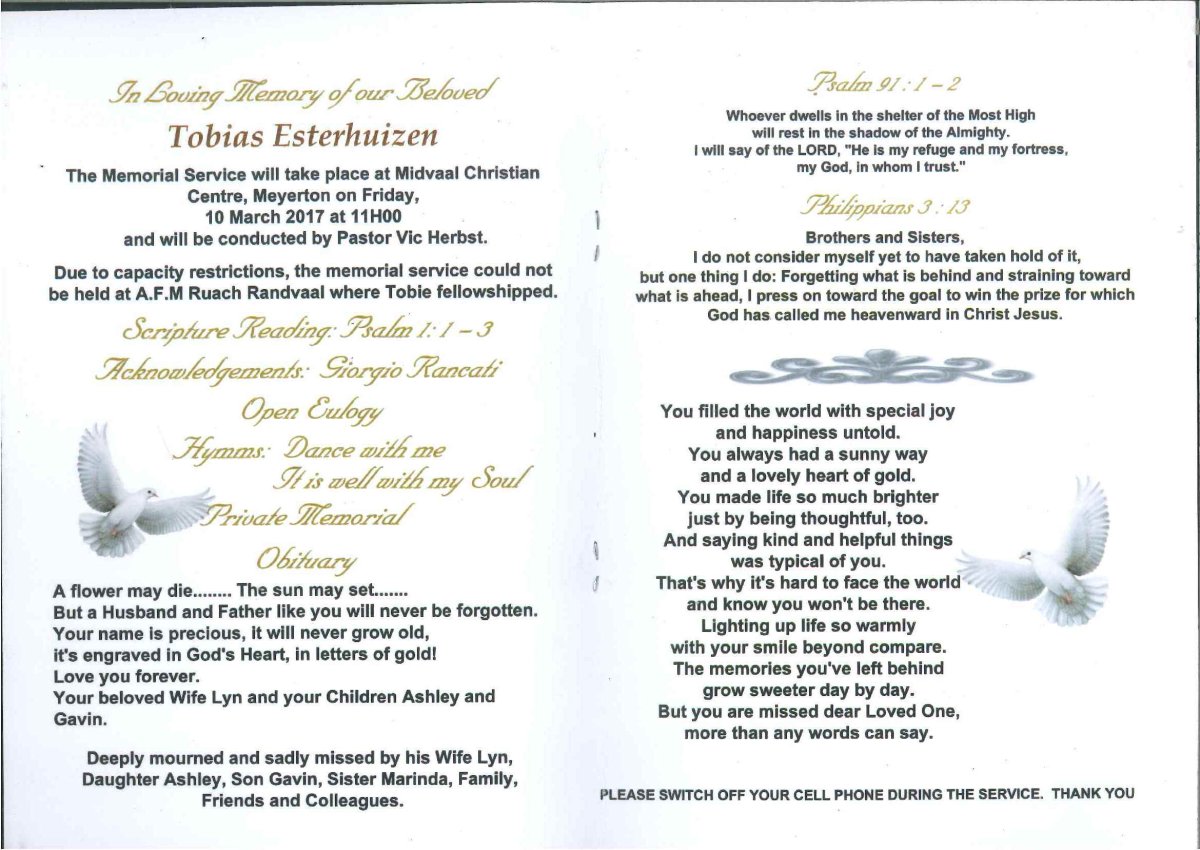 In Loving Memory of our Beloved
Tobias Esterhuizen
The Memorial Service will take place at Midvaal Christian
Centre, Meyerton on Friday,
10 March 2017 at 11H00
and will be conducted by Pastor Vic Herbst.
Due to capacity restrictions, the memorial service could not
be held at A.F.M Ruach Randvaal where Tobie fellowshipped.
Scripture Reading: Psalm 1: 1 – 3
Acknowledgements: Giorgio Rancati
Open Eulogy
Hymms: Dance with me
It is well with my Soul
Private Memorial
Obituary
A flower may die........ The sun may set.......
But a Husband and Father like you will never be forgotten.
Your name is precious, it will never grow old,
it's engraved in God's Heart, in letters of gold!
Love you forever.
Your beloved Wife Lyn and your Children Ashley and
Gavin.
Deeply mourned and sadly missed by his Wife Lyn,
Daughter Ashley, Son Gavin, Sister Marinda, Family,
Friends and Colleagues.
Psalm 91 : 1 – 2
Whoever dwells in the shelter of the Most High
will rest in the shadow of the Almighty.
I will say of the LORD, "He is my refuge and my fortress,
my God, in whom I trust."
Philippians 3 : 13
Brothers and Sisters,
I do not consider myself yet to have taken hold of it,
but one thing I do: Forgetting what is behind and straining toward
what is ahead, I press on toward the goal to win the prize for which
God has called me heavenward in Christ Jesus.
You filled the world with special joy
and happiness untold.
You always had a sunny way
and a lovely heart of gold.
You made life so much brighter
just by being thoughtful, too.
And saying kind and helpful things
was typical of you.
That's why it's hard to face the world
and know you won't be there.
Lighting up life so warmly
with your smile beyond compare.
The memories you've left behind
grow sweeter day by day.
But you are missed dear Loved One,
more than any words can say.
PLEASE SWITCH OFF YOUR CELL PHONE DURING THE SERVICE. THANK YOU